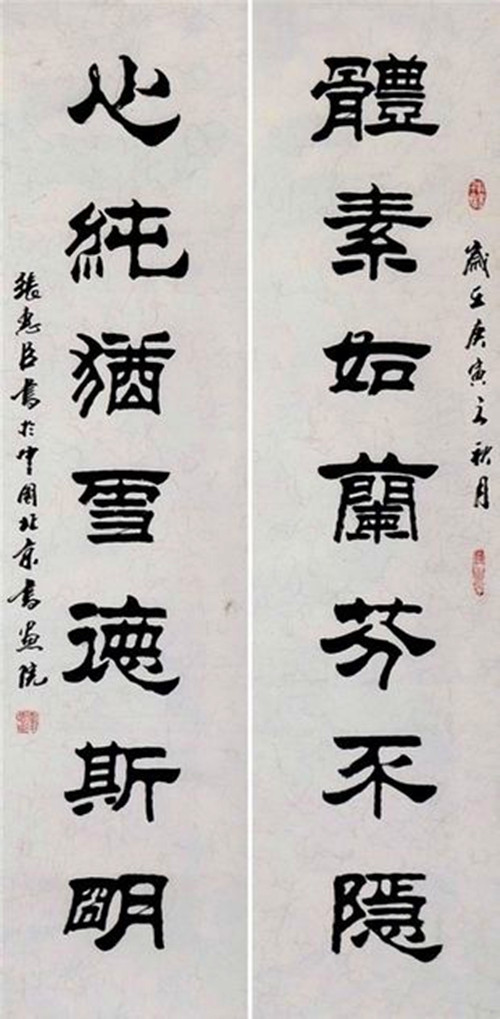 歲在庚寅之秋月
體素如蘭芬不隱
心純猶雪德斯朙
張惠臣書於中国北京書画院